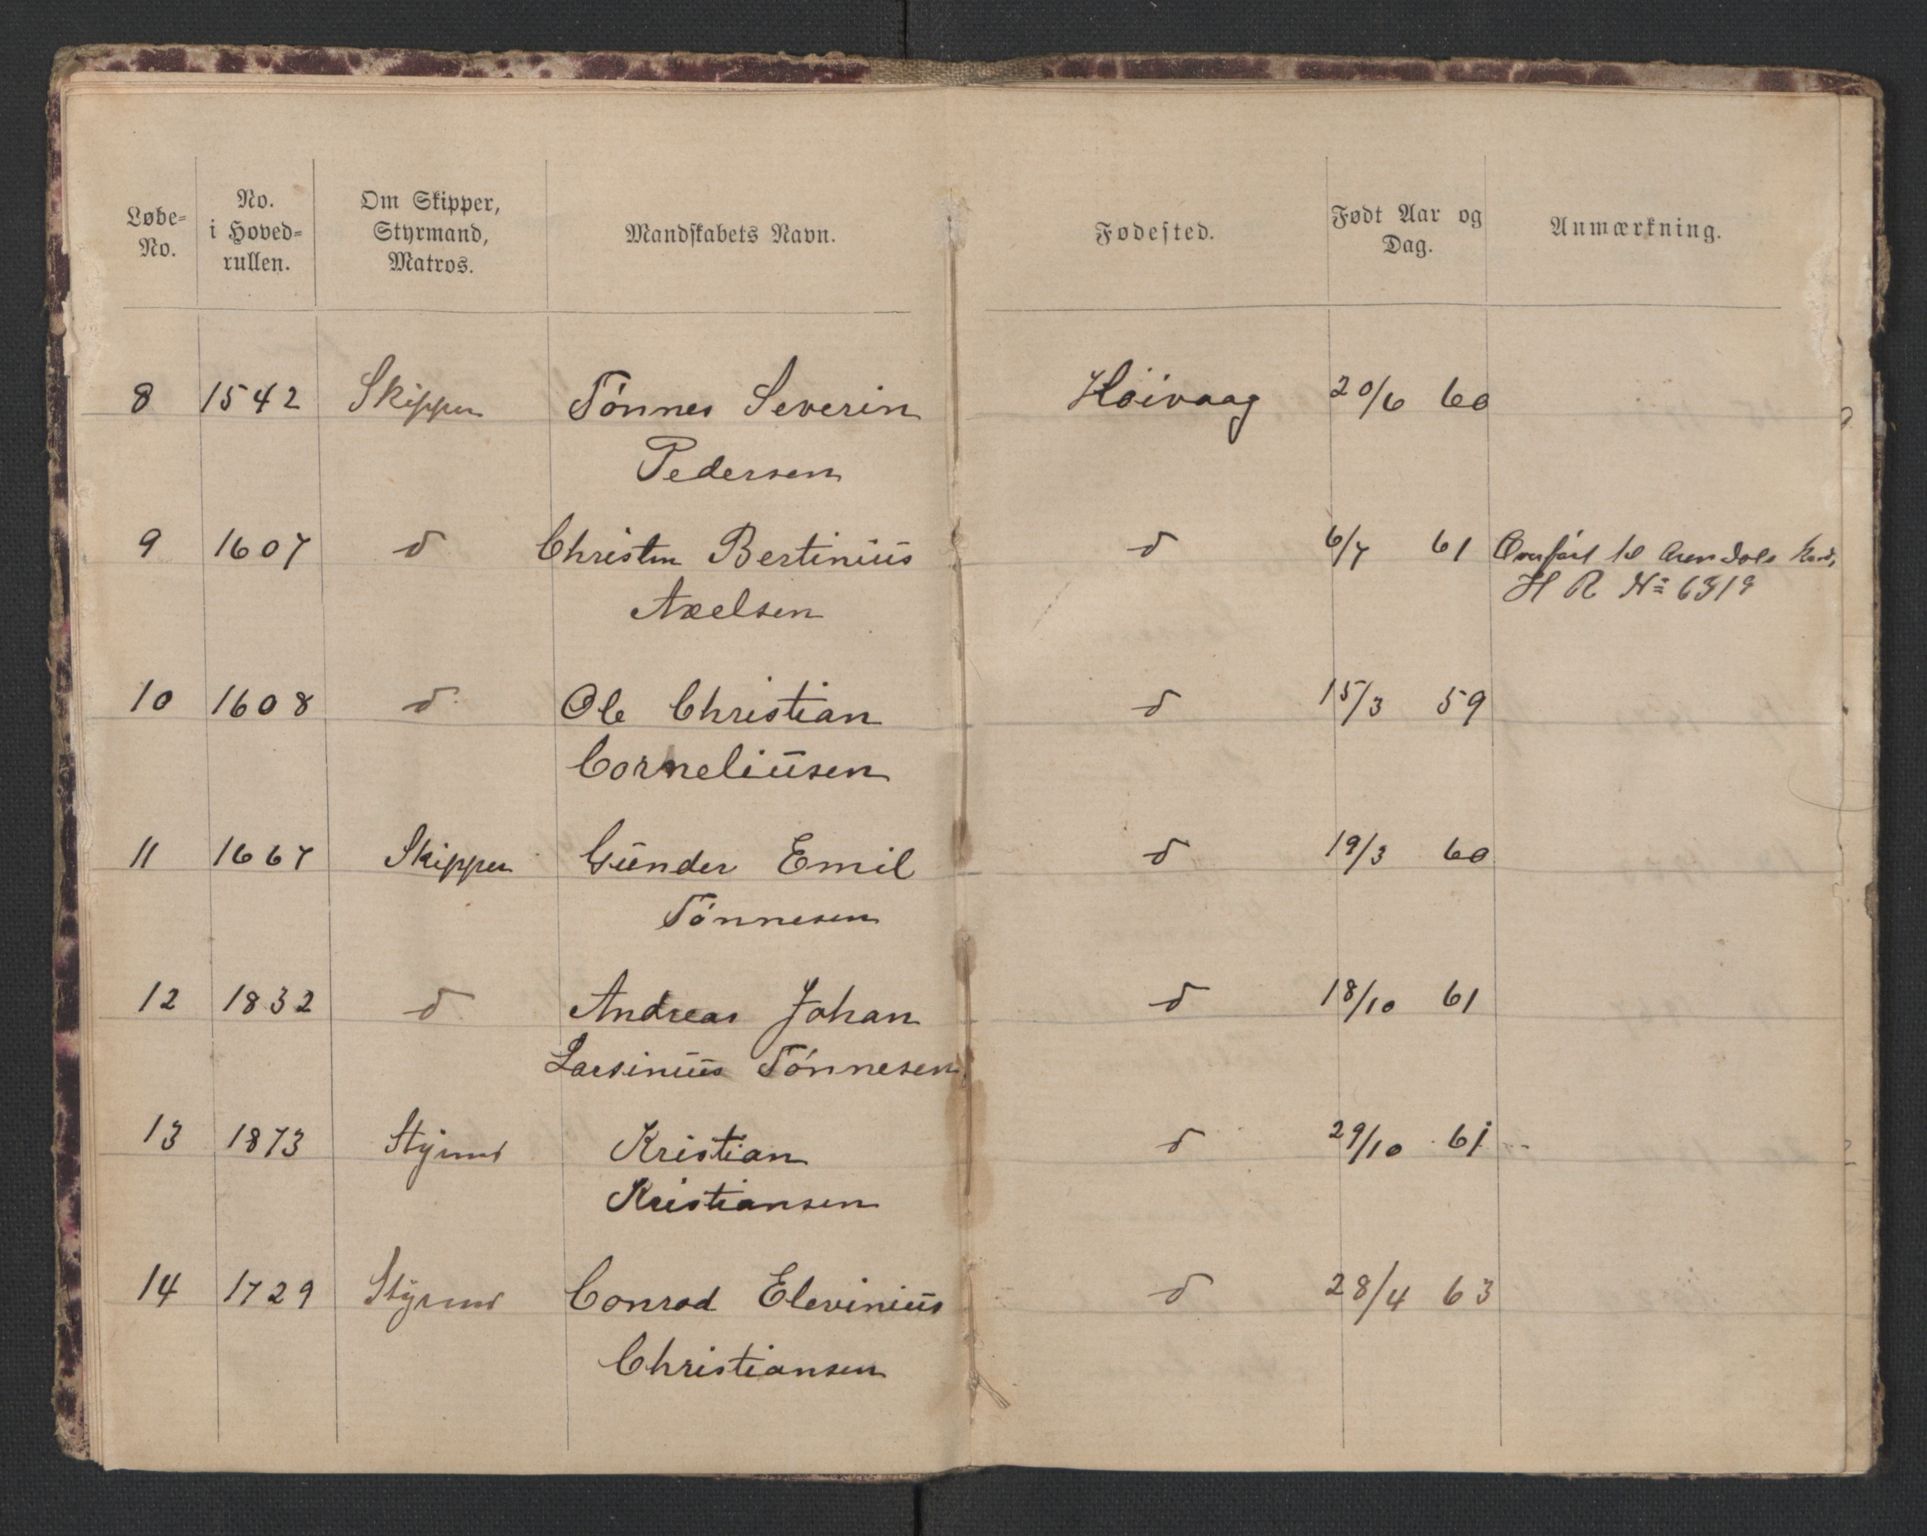 Løbe-No. | No. i Hoved-rullen. | Om Skipper, Styrmand, Matros. | Mandskabets Navn. | Fødested. | Født Aar og Dag. | Anmærkning.
8 1542 Skipper Tønnes Severin Høivaag 20/6 60
Pedersen
9 1607 d Christen Bertinius d 6/7 61 Overført til Arendals
Axelsen H R No 6319
10 1608 d Ole Christian d 15/3 59
Corneliusen
11 1667 Skipper Gunder Emil d 19/3 60
Tønnesen
12 1832 d Andreas Johan d 18/10 61
Larsinius Tønnesen
13 1873 Styrmd Kristian d 29/10 61
Kristiansen
14 1729 Styrmd Conrad Elevinius d 28/4 63
Christiansen